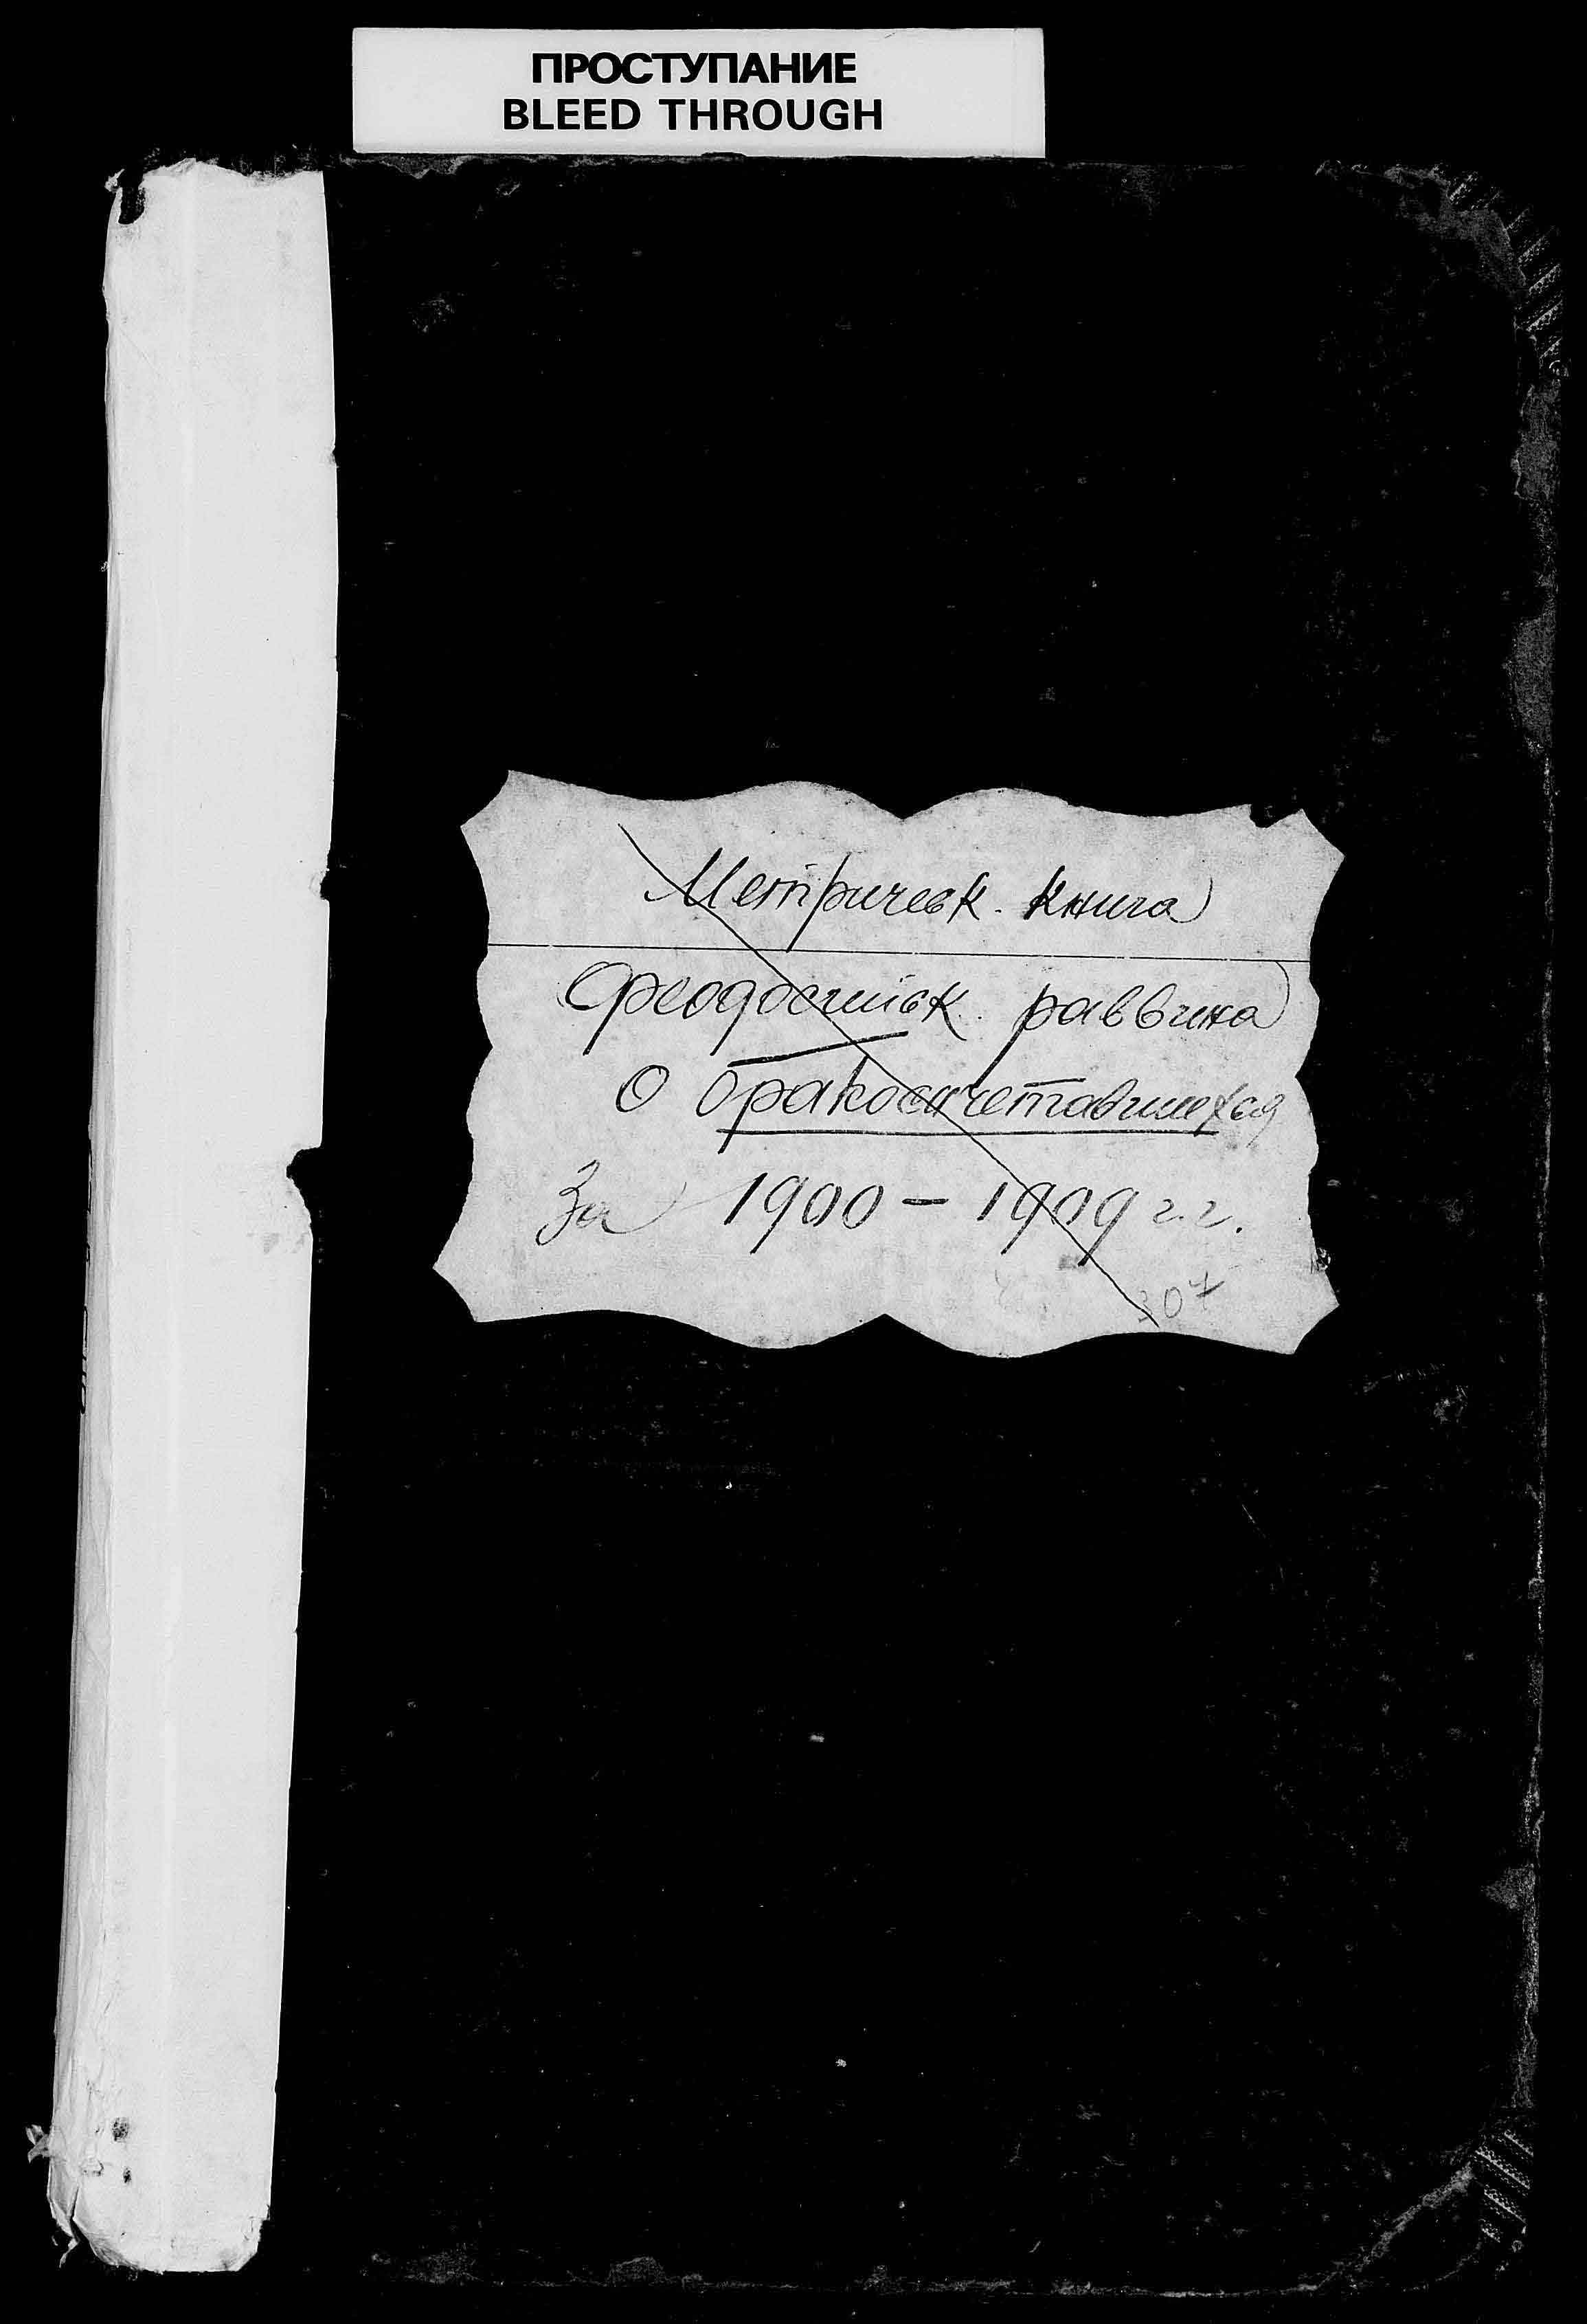 ПРОСТУПАНИЕ
BLEED THROUGH
Метрическ. книга
Феодосийск. раввина
О бракосочетавшихся
За 1900 – 1909 г.г.
307